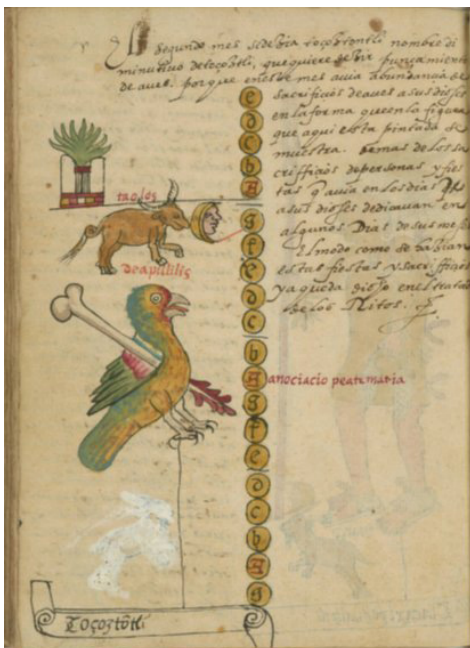 segundo mes se dezia toçoztontli nombre di
minutivo de toçoztli, que quiere dezir punçamiento
de aues. porque en este mes auia abundancia de
sacrificios de aues a sus dioses
en la forma que en la figura
que aqui esta pintada se
muestra. Demas de los sa
crifficios de personas y fies
tas q auia en los dias
a sus diosses dedicauan en
algunos Dias de sus meses
El modo como se hazian
estas fiestas y sacrifficios
ya queda dicho en el tratado
de los Ritos.
e
d
c
b
A
g
f
e
d
c
b
A
g
f
e
d
c
b
A
g
de apulilis
anociacio peatematia
Toçoztõtli